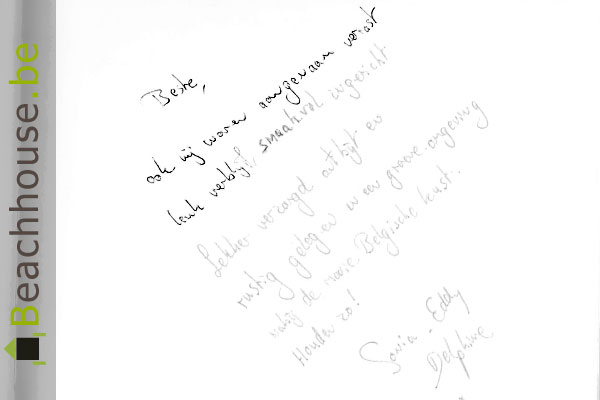 Beachhouse.be
Beste,
ook wij waren aangenaam verrast
leuk verblijf, smaakvol ingericht
Lekker verzorgd ontbijt en
rustig gelegen in een groene omgeving
nabij de mooie Belgische kust.
Houden zo!
Sonia - Eddy
Delphine